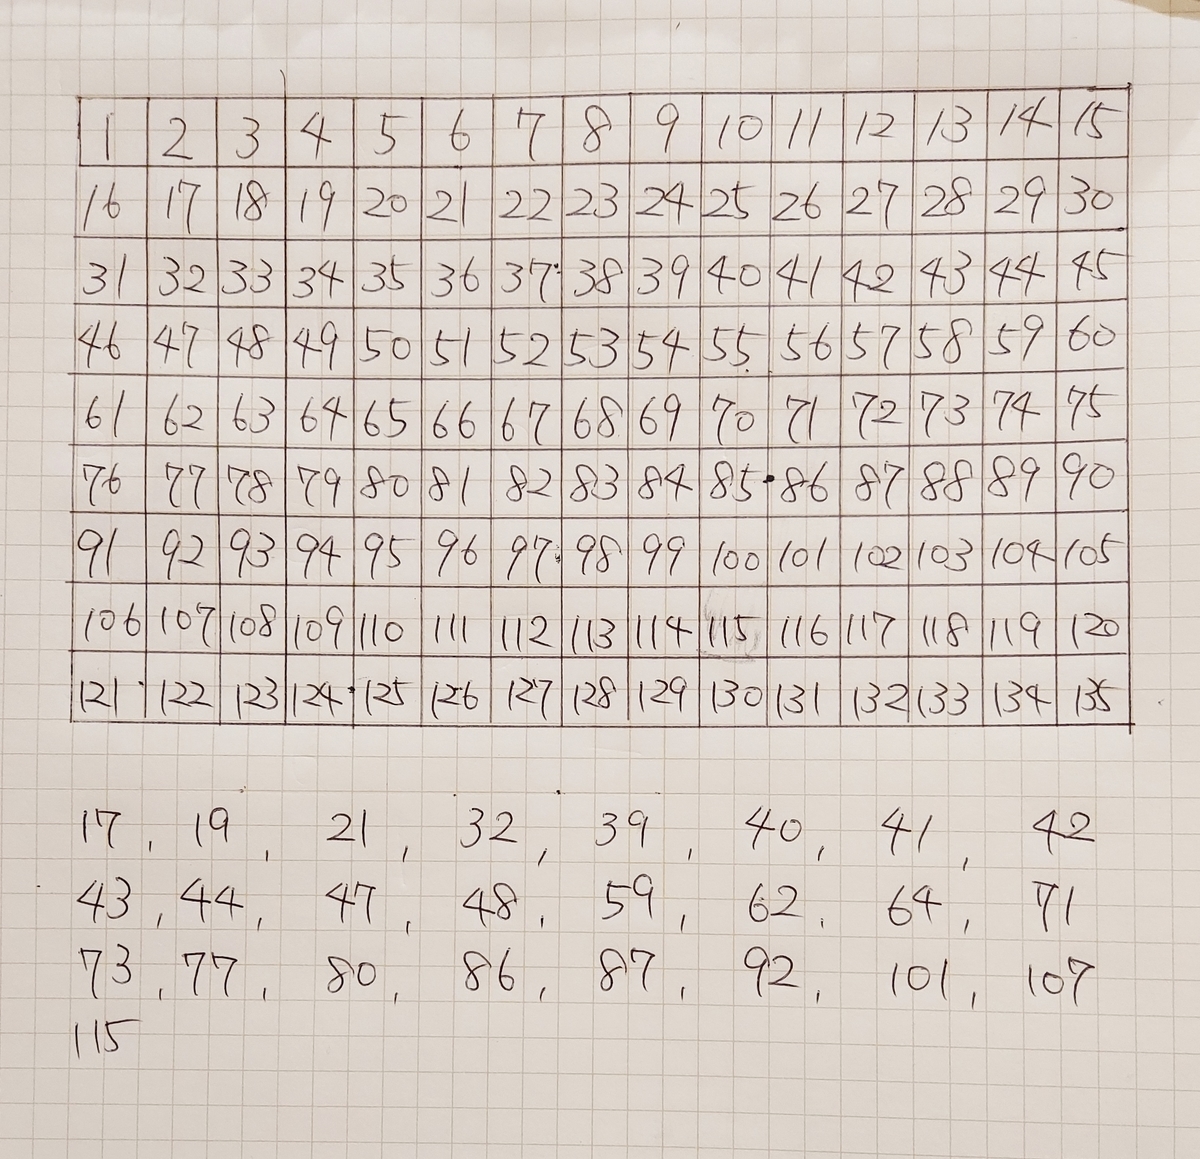 1 2 3 4 5 6 7 8 9 10 11 12 13 14 15
16 17 18 19 20 21 22 23 24 25 26 27 28 29 30
31 32 33 34 35 36 37 38 39 40 41 42 43 44 45
46 47 48 49 50 51 52 53 54 55 56 57 58 59 60
61 62 63 64 65 66 67 68 69 70 71 72 73 74 75
76 77 78 79 80 81 82 83 84 85 86 87 88 89 90
91 92 93 94 95 96 97 98 99 100 101 102 103 104 105
106 107 108 109 110 111 112 113 114 115 116 117 118 119 120
121 122 123 124 125 126 127 128 129 130 131 132 133 134 135
17, 19, 21, 32, 39, 40, 41, 42
43, 44, 47, 48, 59, 62, 64, 71
73, 77, 80, 86, 87, 92, 101, 107
115